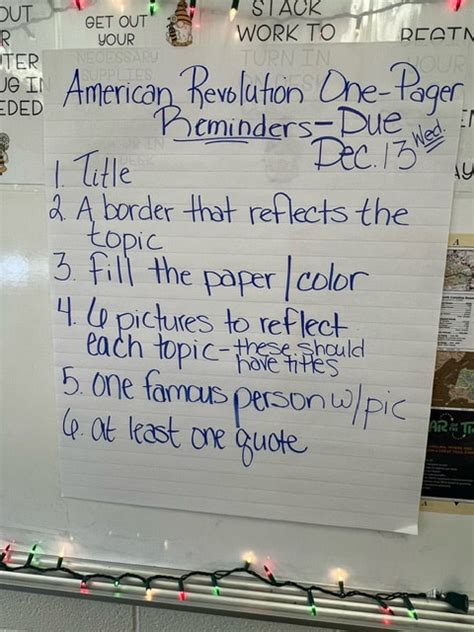 OUT
GET OUT
YOUR
NECESSARY
SUPPLIES
STACK
WORK TO
TURN IN
BEGIN
YOUR
American Revolution One-Pager
Reminders-Due
Dec. 13 Wed.
1. Title
2. A border that reflects the
topic
3. fill the paper/color
4. 6 pictures to reflect
each topic- these should
have titles
5. one famous person w/pic
6. at least one quote